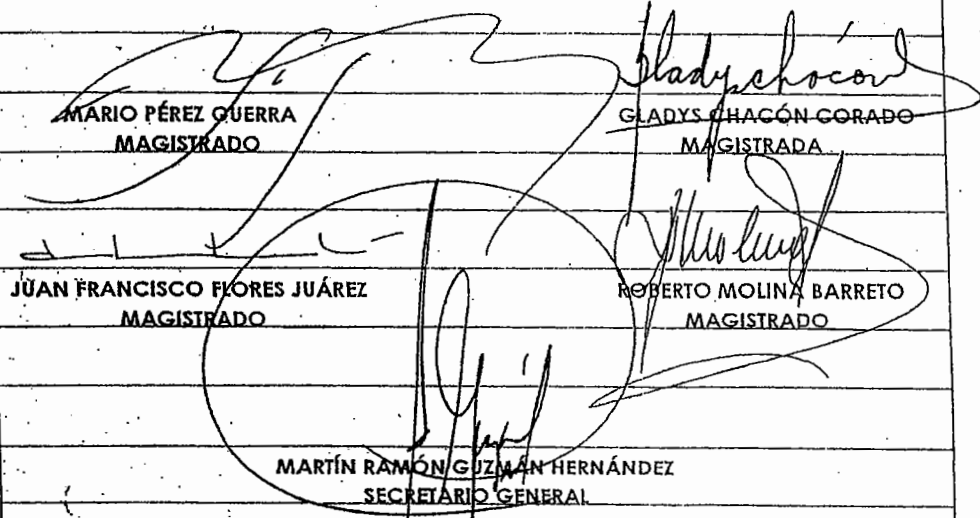 Gladys Chacón
MARIO PÉREZ GUERRA
MAGISTRADO
GLADYS CHACÓN CORADO
MAGISTRADA
JUAN FRANCISCO FLORES JUÁREZ
MAGISTRADO
ROBERTO MOLINA BARRETO
MAGISTRADO
MARTÍN RAMÓN GUZMÁN HERNÁNDEZ
SECRETARIO GENERAL